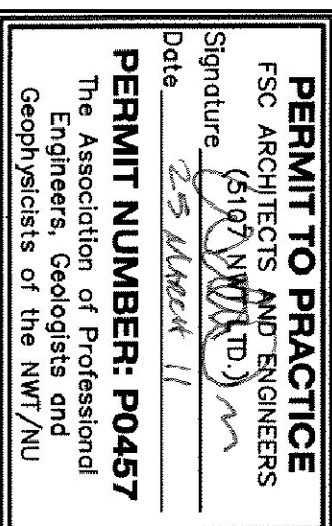 PERMIT TO PRACTICE
FSC ARCHITECTS AND ENGINEERS
(5107 NWT LTD.)
Signature
Date 25 March 11
PERMIT NUMBER: P0457
The Association of Professional
Engineers, Geologists and
Geophysicists of the NWT/NU